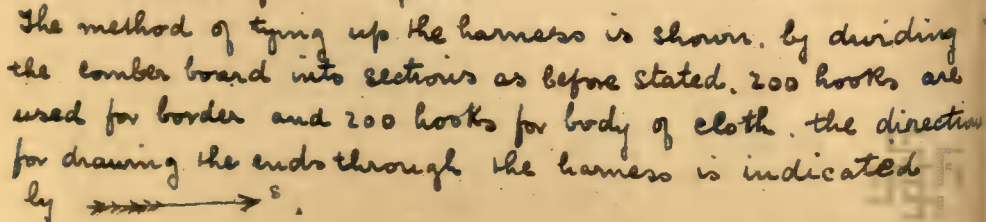 The method of tying up the harness is shown. by dividing
the comber board into sections as before stated. 200 hooks are
used for border and 200 hooks for body of cloth. the direction
for drawing the ends through the harness is indicated
by →s.